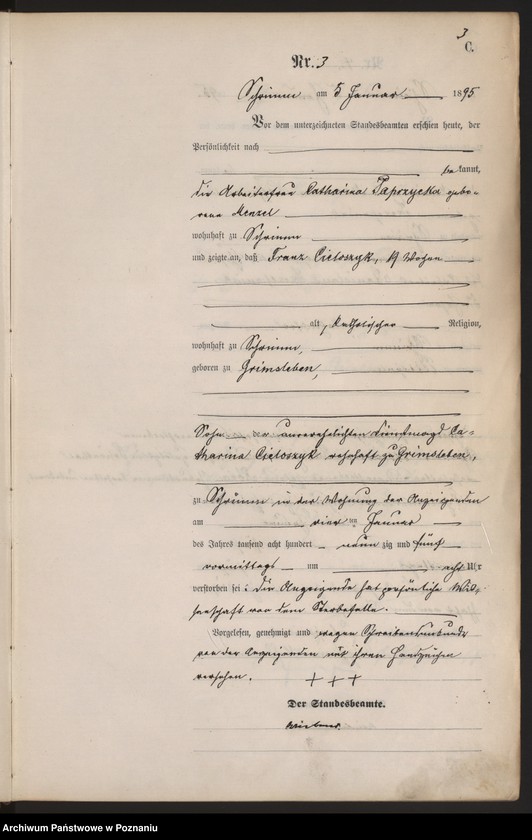 3
C.
Nr. 3
Schrimm am 5 Januar 1895
Vor dem unterzeichneten Standesbeamten erschien heute, der
Persönlichkeit nach
be kannt,
die Arbeiterfrau Catharina Taprzycka gebo-
rene Menzel
wohnhaft zu Schrimm
und zeigte an, daß Franz Cieloszyk, 19 Wochen
alt, katholischer Religion,
wohnhaft zu Schrimm,
geboren zu Grimsleben,
Sohn der unverehelichten Dienstmagd Ca-
tharina Cieloszyk wohnhaft zu Grimsleben,
zu Schrimm in der Wohnung der Anzeigenden
am vier ten Januar
des Jahres tausend acht hundert neun zig und fünf
vormittags um acht Uhr
verstorben sei: Die Anzeigende hat persönliche Wis-
senschaft von dem Sterbefalle.
Vorgelesen, genehmigt und wegen Schreibensunkunde
von der Anzeigenden mit ihren Handzeichen
versehen. + + +
Der Standesbeamte.
Archiwum Państwowe w Poznaniu